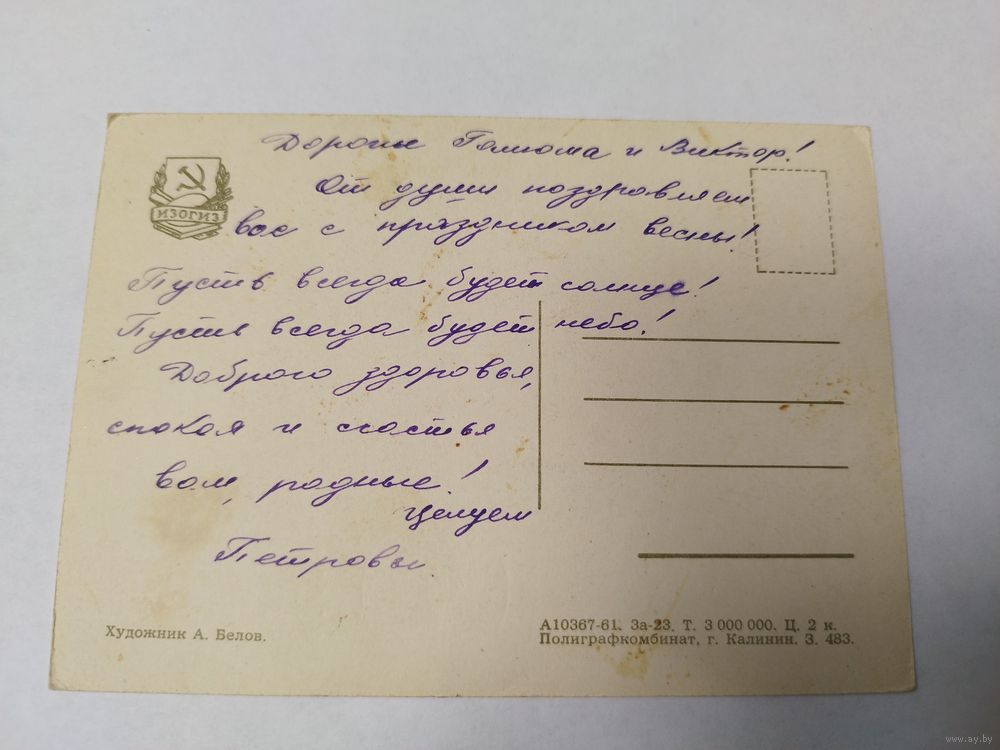 Дорогие и Виктор!
От души поздравляем
вас с праздником весны!
Пусть всегда будет солнце!
Пусть всегда будет небо!
Доброго здоровья,
спокоя и счастья
вам, родные!
Целуем
Петровы.
ИЗОГИЗ
Художник А. Белов.
А10367-61. За-23. Т. 3 000 000. Ц. 2 к.
Полиграфкомбинат, г. Калинин. З. 483.
www.ay.by